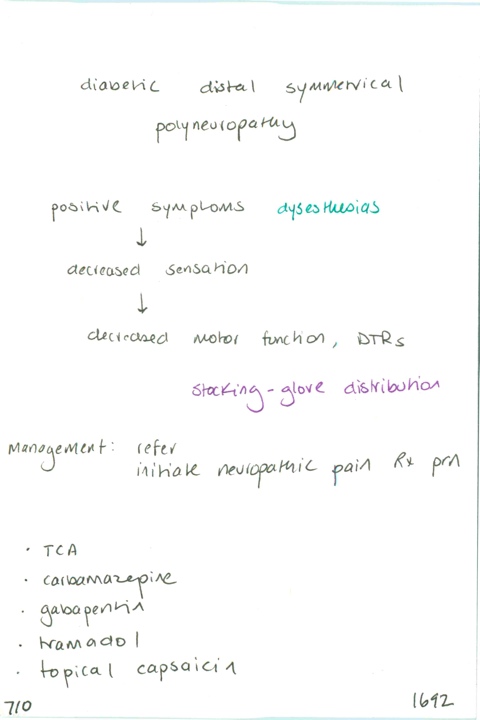 diabetic distal symmetrical
polyneuropathy
positive symptoms dysesthesias
↓
decreased sensation
↓
decreased motor function, DTRs
stocking-glove distribution
Management: refer
initiate neuropathic pain Rx prn
· TCA
· carbamazepine
· gabapentin
· tramadol
· topical capsaicin
710 1692